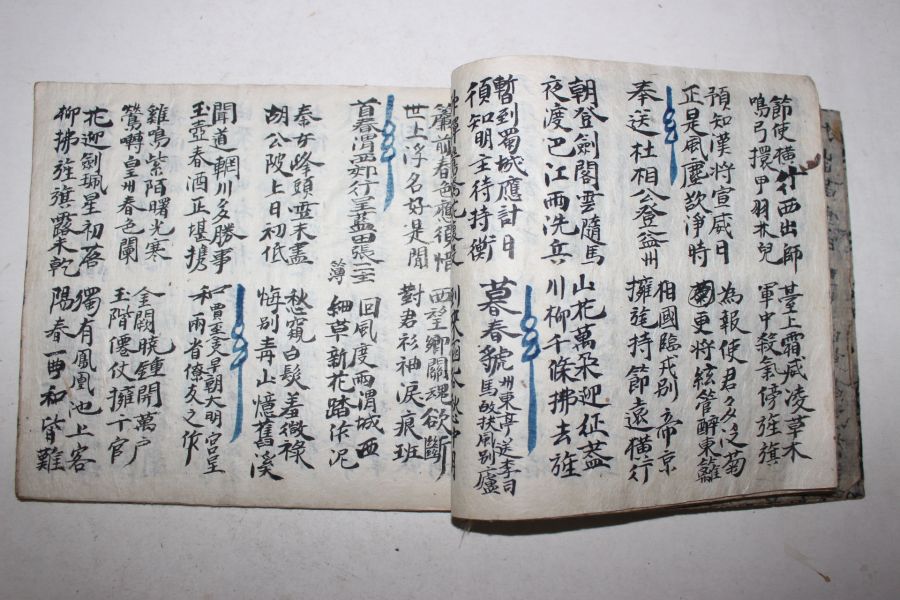 節使橫行西出師
鳴弓擐甲羽林兒
臺上霜威凌草木
軍中殺氣傍旌旗
預知漢將宣威日
正是風塵欲淨時
為報使君多泛菊
更將絃管醉東籬
奉送杜相公登益州
相國臨戎別帝京
擁旄持節遠橫行
朝登劍閣雲隨馬
夜渡巴江雨洗兵
山花萬朵迎征蓋
川柳千條拂去旌
暫到蜀城應計日
須知明主待持衡
暮春虢州東亭送李司
馬歸扶風別廬
簾前春色應須惜
世上浮名好是閒
西望鄉關魂欲斷
對君衫袖淚痕班
首春渭西郊行呈藍田張二主
簿
回風度雨渭城西
細草新花踏作泥
秦女峰頭雪未盡
胡公陂上日初低
愁窺白髮羞微祿
悔別青山憶舊溪
聞道輞川多勝事
玉壺春酒正堪携
和賈至舍早朝大明宮呈
和兩省僚友之作
雞鳴紫陌曙光寒
鶯囀皇州春色闌
金闕曉鐘開萬户
玉階僊仗擁千官
花迎劍珮星初落
柳拂旌旗露未乾
獨有鳳凰池上客
陽春一曲和皆難